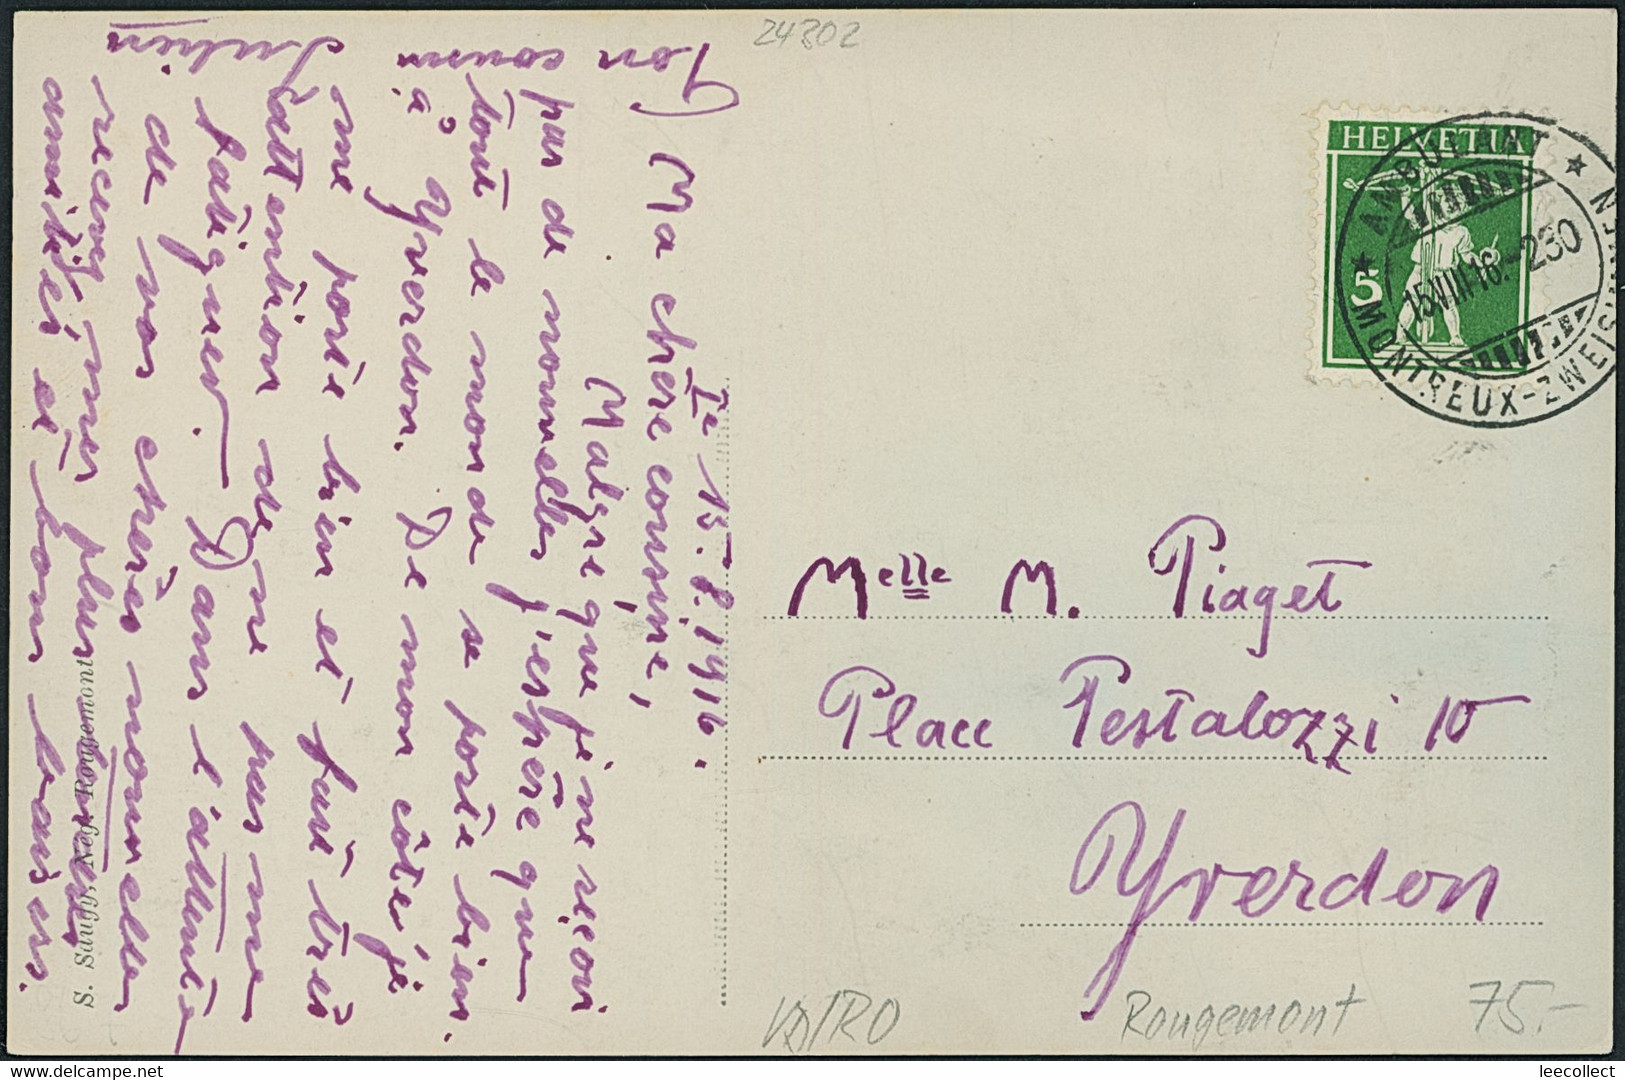 24302
Iè 15.8.1916.
Ma chère cousine,
Malgré que je ne reçoi
pas de nouvelles j'espère que
tout le monde se porte bien
à Yverdon. De mon côté je
me porte bien et fait très
attention de ne pas me
fatiguer. Dans l'attente
de vos chères nouvelles
recevez, mes plus
amitiés et bons baisers.
Ton cousin
S. Saugy, Négt Rougemont
HELVETIA
5
AMBULANT
MONTREUX-ZWEIS
15.VIII.16.-230
Melle M. Piaget
Place Pestalozzi 10
Yverdon
Rougemont
75.-
leecollect